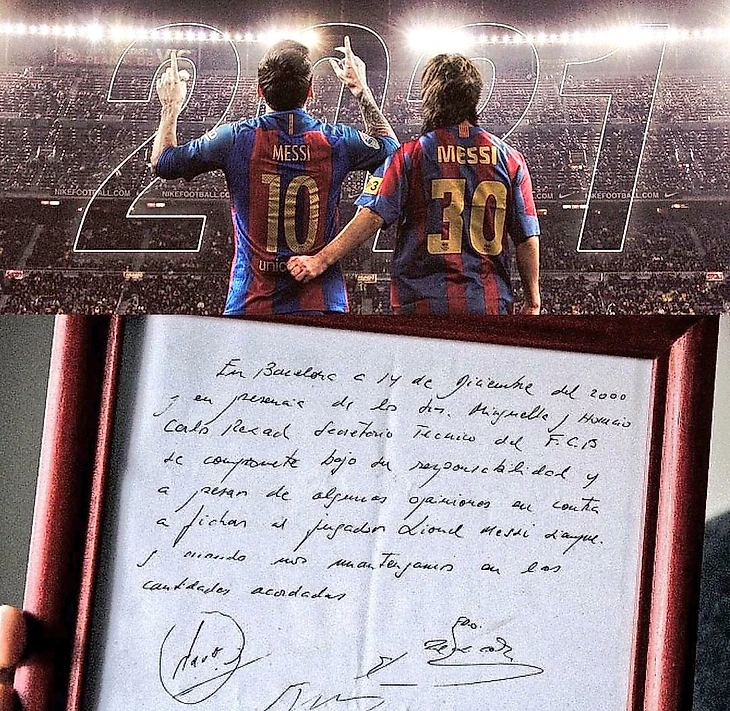 2021
NIKEFOOTBALL.COM NIKEFOOTBALL.COM NIKEFOOTBALL.COM
MESSI MESSI
10 30
unic
En Barcelona a 14 de Diciembre del 2000
y en presencia de los Srs. Minguella y Horacio
Carlos Rexach Secretario Tecnico del F.C.B
se compromete bajo su responsabilidad y
a pesar de algunas opiniones en contra
a fichar al jugador Lionel Messi siempre
y cuando nos mantengamos en las
cantidades acordadas
Fdo.